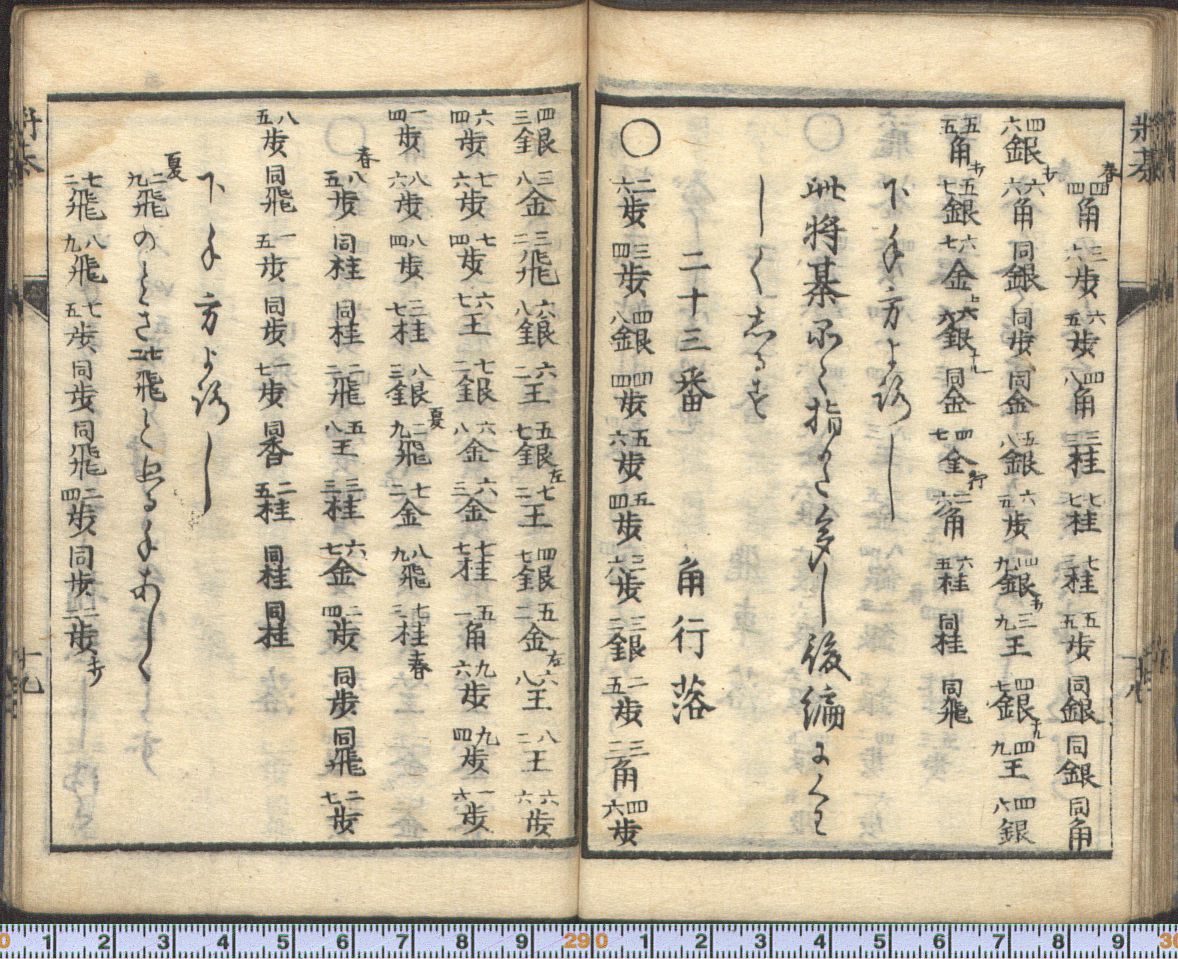 将棊
春 四四角 三六歩 六五歩 四八角 三三桂 七七桂 五五歩 同銀 同銀 同角
四六銀打 六六角 同銀 同歩 同金 五八銀 六五歩 四九銀打 三九王 四七銀不成 四九王 四八銀
五五角打 五七銀 六七金 六六銀上 同金 四七金 二六角 六五桂 同桂 同飛
下手方よろし
此将棊 指かた多し後編にくわ
しくしるす
二十三番 角行落
〇 二六歩 三四歩 四八銀 四四歩 五六歩 五四歩 三六歩 三二銀 二五歩 三三角 四六歩
四三銀 三八金 三二飛 六八銀 六二王 五七銀左 七二王 四七銀 五二金右 六八王 八二王 六六歩
六四歩 七六歩 七四歩 六七王 七二銀 六八金 六三金 七七桂 五一角 九六歩 九四歩 一六歩
一四歩 八六歩 八四歩 三七桂 八三銀 夏 二九飛 七二金 八九飛 七三桂 春
春 八五歩 同桂 同桂 二二飛 五八王 三三桂 六七金 二四歩 同歩 同飛 二七歩
八五歩 同飛 一五歩 同歩 同香 二五桂 同桂 同桂
下手方よろし
夏 二九飛のとき七二飛と出る手あしく
七二飛 八九飛 七五歩 同歩 同飛 二四歩 同歩 二二歩打
将棊 十九